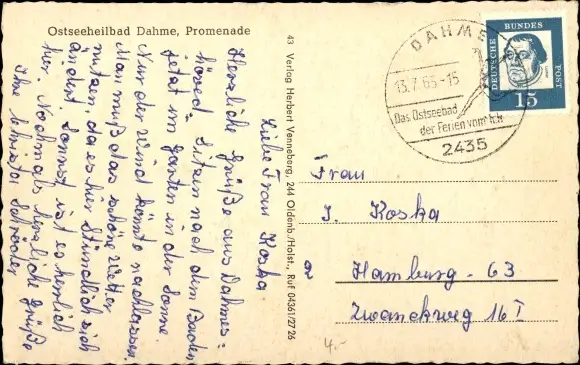 Ostseeheilbad Dahme, Promenade
Liebe Frau Koska
Herzliche Grüße aus Dahme:
höred. Sitzen nach dem Baden
jetzt im Garten in der Sonne
Nur der Wind könnte nachlassen.
Man muß das schöne Wetter
nutzen, da es hier stündlich sich
ändert. Sonst ist es herrlich
hier. Nochmals herzliche Grüße
Ihre Schröder
43 Verlag Herbert Venneberg, 244 Oldenb./Holst., Ruf 04361/2726
DAHME
13.7.65-15
Das Ostseebad
der Ferien vom Ich
2435
DEUTSCHE BUNDES POST
15
Frau
I. Koska
2 Hamburg - 63
Zwanckweg 16 I
4.-